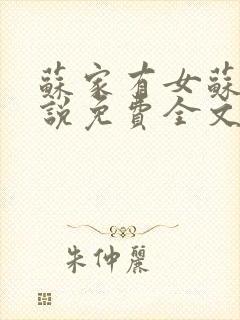 蘇家有女蘇
說免費全文
朱仲麗